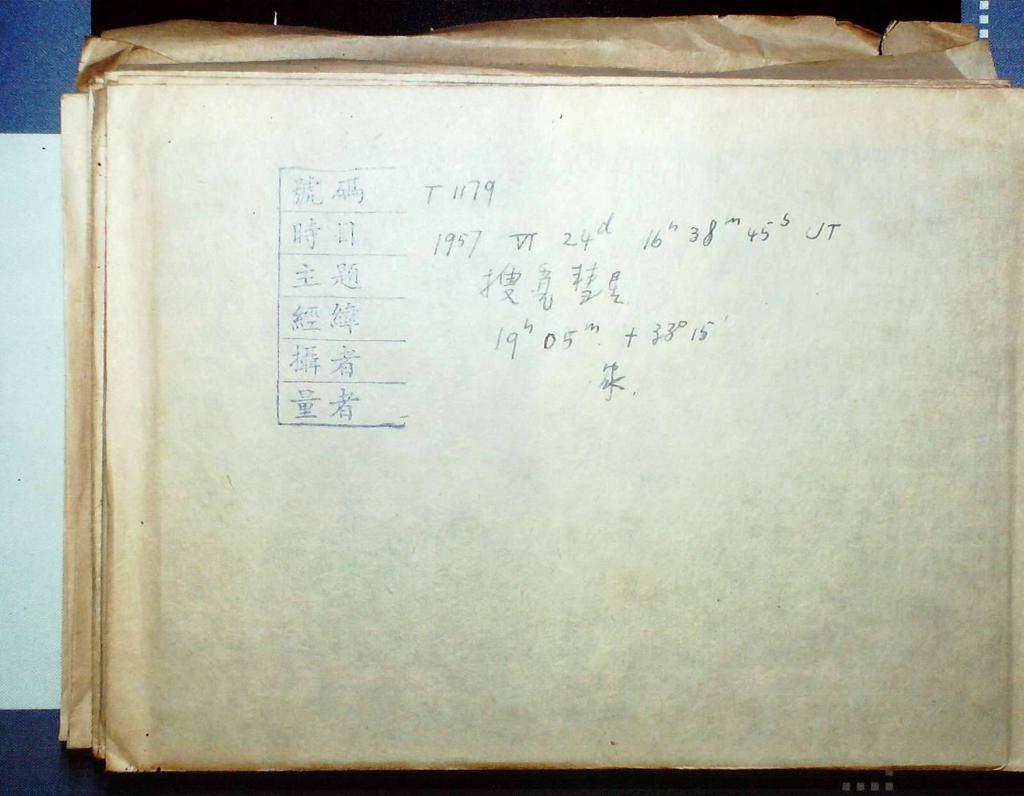 號碼 T 1179
時日 1957 VI 24d 16h 38m 45s UT
主題 搜亮彗星
經緯 19h 05m. + 33° 15'
攝者 朱.
量者